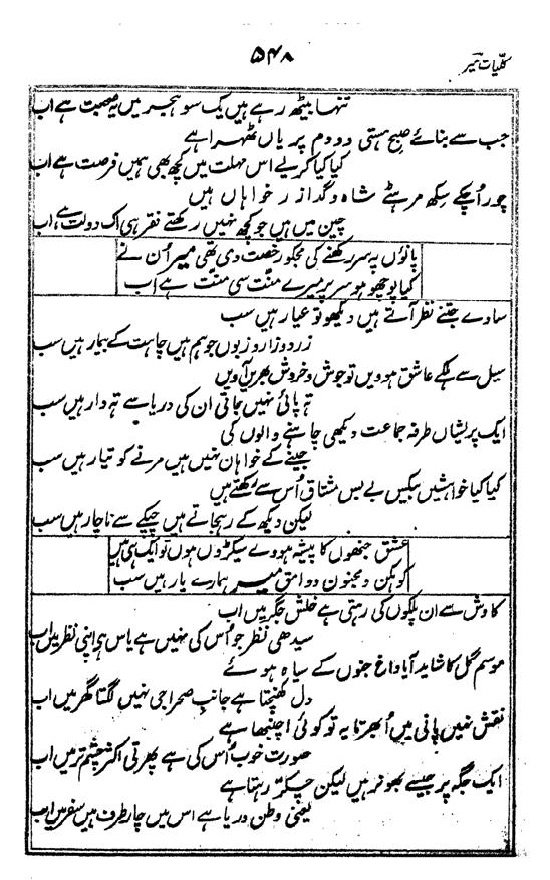 کلیات میر
۵۴۸
تنہا بیٹھ رہے ہیں یک سو ہجر میں یہ صحبت ہے اب
جب سے بنائے صبح ہستی دو دم پر یاں ٹھہرا ہے
کیا کیا کریے اس مہلت میں کچھ بھی ہمیں فرصت ہے اب
چور اُچکے سکھ مرہٹے شاہ و گدا زر خواہاں ہیں
چین میں ہیں جو کچھ نہیں رکھتے فقر ہی اک دولت ہے اب
پانؤں پہ سر رکھنے کی مجکو رخصت دی تھی میر اُن نے
کیا پوچھو ہو سر پر میرے منّت سی منّت ہے اب
سادے جتنے نظر آتے ہیں دیکھو تو عیار ہیں سب
زرد و زار و زبوں جو ہم ہیں چاہت کے بیمار ہیں سب
سیل سے ہلکے عاشق ہوویں تو جوش و خروش بھریں آویں
تہ پائی نہیں جاتی ان کی دریا سے تہ دار ہیں سب
ایک پریشاں طرفہ جماعت دیکھی چاہنے والوں کی
جینے کے خواہان نہیں ہیں مرنے کو تیار ہیں سب
کیا کیا خواہشیں بیکس بے بس مشتاق اُس سے رکھتے ہیں
لیکن دیکھ کے رہجاتے ہیں چپکے سے ناچار ہیں سب
عشق جنھوں کا پیشہ ہووے سیکڑوں ہوں تو ایک ہی ہیں
کوہکن و مجنون و وامق میر ہمارے یار ہیں سب
کاوش سے ان پلکوں کی رہتی ہے خلش جگر میں اب
سیدھی نظر جو اُس کی نہیں ہے یاس ہے اپنی نظر میں اب
موسم گل کا شاید آیا داغ جنوں کے سیاہ ہوئے
دل کھنچتا ہے جانبِ صحرا جی نہیں لگتا گھر میں اب
نقش نہیں پانی میں اُبھرتا یہ تو کوئی اچنبھا ہے
صورت خوب اُس کی ہے پھرتی اکثر چشم تر میں اب
ایک جگہ پر جیسے بھونر ہیں لیکن چکّر رہتا ہے
یعنی وطن دریا ہے اس میں چار طرف ہیں سفر میں اب